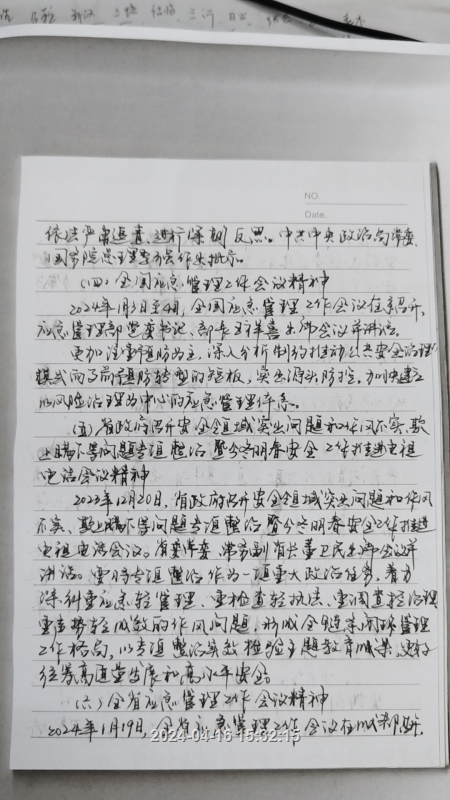 NO.
Date.
依法严肃追责、进行深刻反思。中共中央政治局常委
国务院总理李强作出批示。
(四)全国应急管理工作会议精神
2024年1月 日至 日,全国应急管理工作会议在 召开,
应急管理部党委书记、部长王祥喜出席会议并讲话。
更加注重预防为主,深入分析制约推动公共安全治理
模式向事前预防转型的短板,突出源头防控,加快建立
以风险治理为中心的应急管理体系。
(五)省政府召开安全领域突出问题和作风不实、欺
上瞒下等问题专项整治暨今冬明春安全工作推进电视
电话会议精神
2023年12月20日,省政府召开安全领域突出问题和作风
不实、欺上瞒下等问题专项整治暨今冬明春安全工作推进
电视电话会议。省委常委、常务副省长董卫民出席会议并
讲话。要将专项整治作为一项重大政治任务,着力
纠重应急轻管理、重检查轻执法、重调查轻治理
重声势轻成效的作风问题,形成全链条闭环管理
工作格局,以专项整治实效检验主题教育成果,更好
统筹高质量发展和高水平安全。
(六)全省应急管理工作会议精神
2024年1月19日,全省应急管理工作会议在成都召开。
2024-04-16 15:32:15